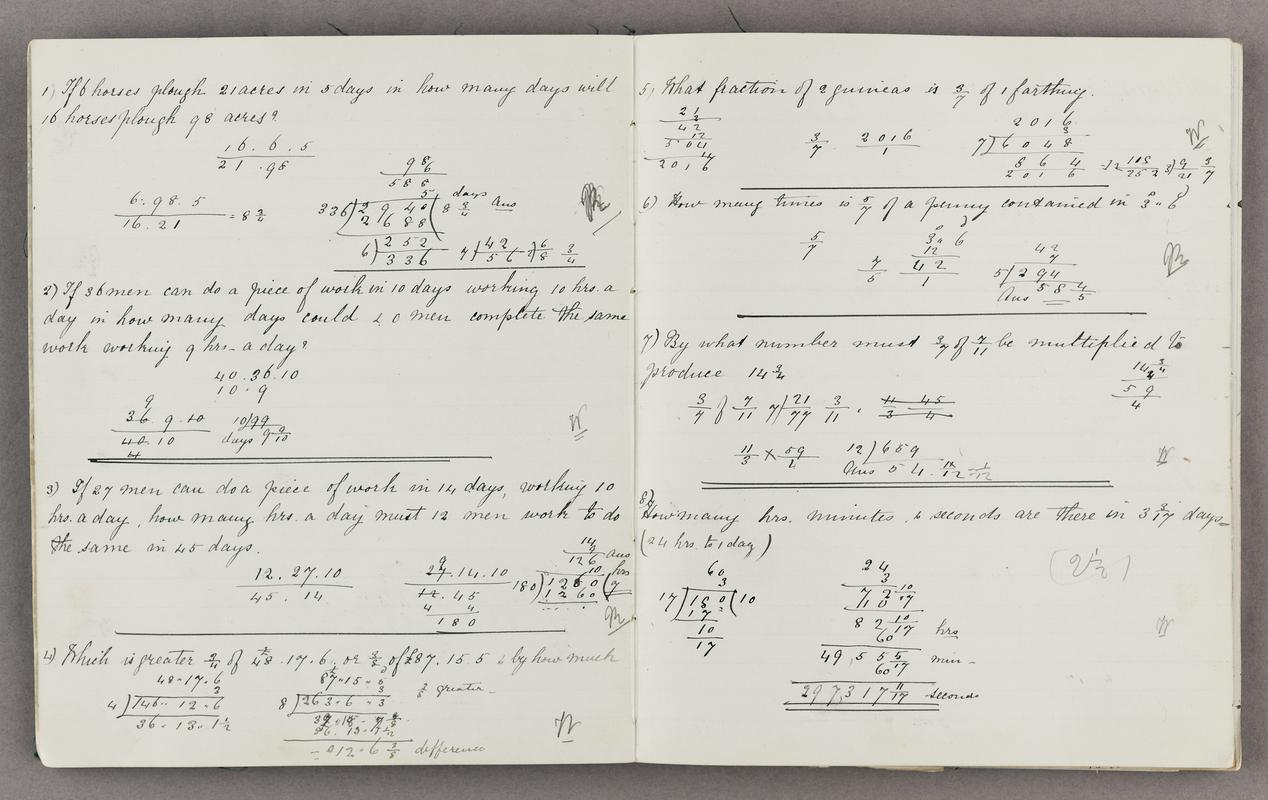 1) If 6 horses plough 21 acres in 5 days in how many days will
16 horses plough 98 acres?
16 . 6 . 5
21 . 98
6 . 98 . 5
16 . 21
= 8 3/4
98
6
588
5
336) 2940 ( 8 3/4 days Ans
2688
6) 252/336 7) 42/56 6/8 3/4
2) If 36 men can do a piece of work in 10 days working 10 hrs. a
day in how many days could 40 men complete the same
work working 9 hrs a day?
40 . 36 . 10
10 . 9
9
36 9 . 10
40 . 10
4
10) 99
days 9 9/10
3) If 27 men can do a piece of work in 14 days, working 10
hrs. a day, how many hrs. a day must 12 men work to do
the same in 45 days.
12 . 27 . 10
45 . 14
9
27 . 14 . 10
12 . 45
4 4
180
14
9
126 Ans
10 hrs
180) 1260 ( 7
1260
4) Which is greater 3/4 of £48 . 17 . 6 . or 3/8 of £87 . 15 . 5 & by how much
48 - 17 - 6
3
4) 146 - 12 - 6
36 - 13 - 1 1/2
3
8) 263 - 6 - 3
3/8 greater -
difference
5) What fraction of 2 guineas is 3/7 of 1 farthing.
21
2
42
12
504
2016
3/7 2016/1
2016
3
7) 6048
864
2016
9/21 3/7
6) How many times is 5/7 of a penny contained in 3 " 6
5/7
3 " 6
12
7/5 42/1
42
7
5) 294
Ans 58 4/5
7) By what number must 3/7 of 7/11 be multiplied to
produce 14 3/4
14 3/4
4
59
4
3/7 of 7/11 7) 21/77 3/11 .
11/3 × 59/4
12) 659
Ans 54 .
8)
How many hrs. minutes, & seconds are there in 3 3/17 days =
(24 hrs. to 1 day)
(2 1/2)
60
3
17) 180 ( 10
17
10
17
24
3
72 10/17
10 17
82 10/17 hrs
60
49,55 5/17 min -
60
297,317 11/17 seconds